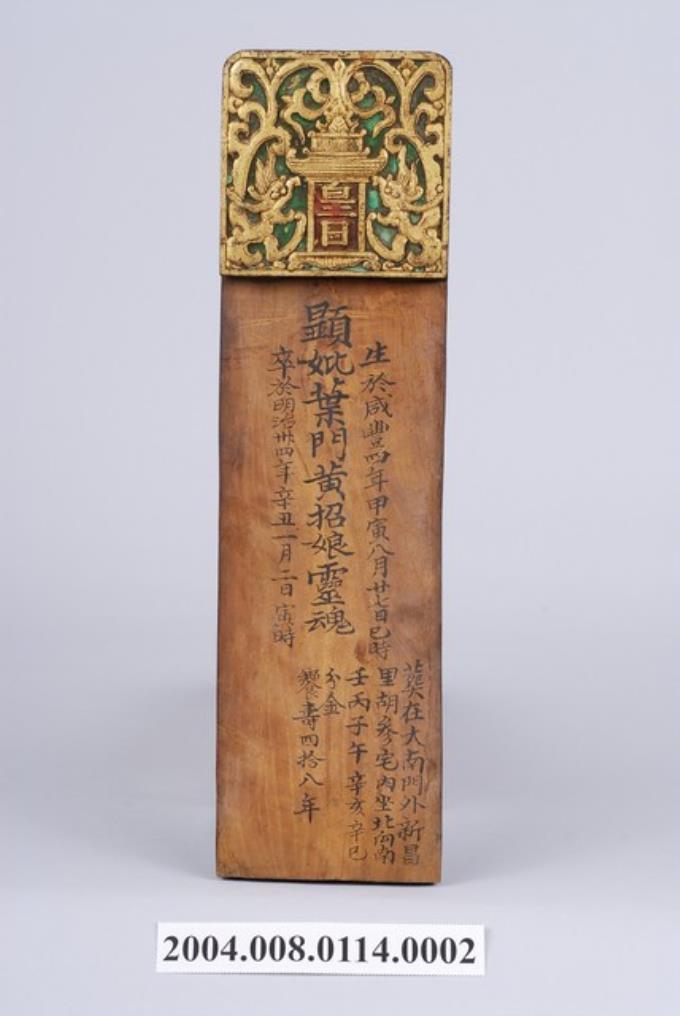 皇日
顯妣葉門黃招娘靈魂
生於咸豐四年甲寅八月廿七日巳時
卒於明治卅四年辛丑一月二日寅時
葬在大南門外新昌
里胡參宅內坐北向南
壬丙子午辛亥辛巳
分金
饗壽四拾八年
2004.008.0114.0002